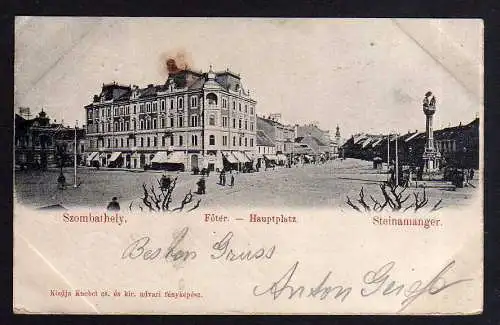 Szombathely. Főtér. — Hauptplatz Steinamanger.
Besten Gruss
Anton Geig
Kiadja Knebel cs. és kir. udvari fényképész.